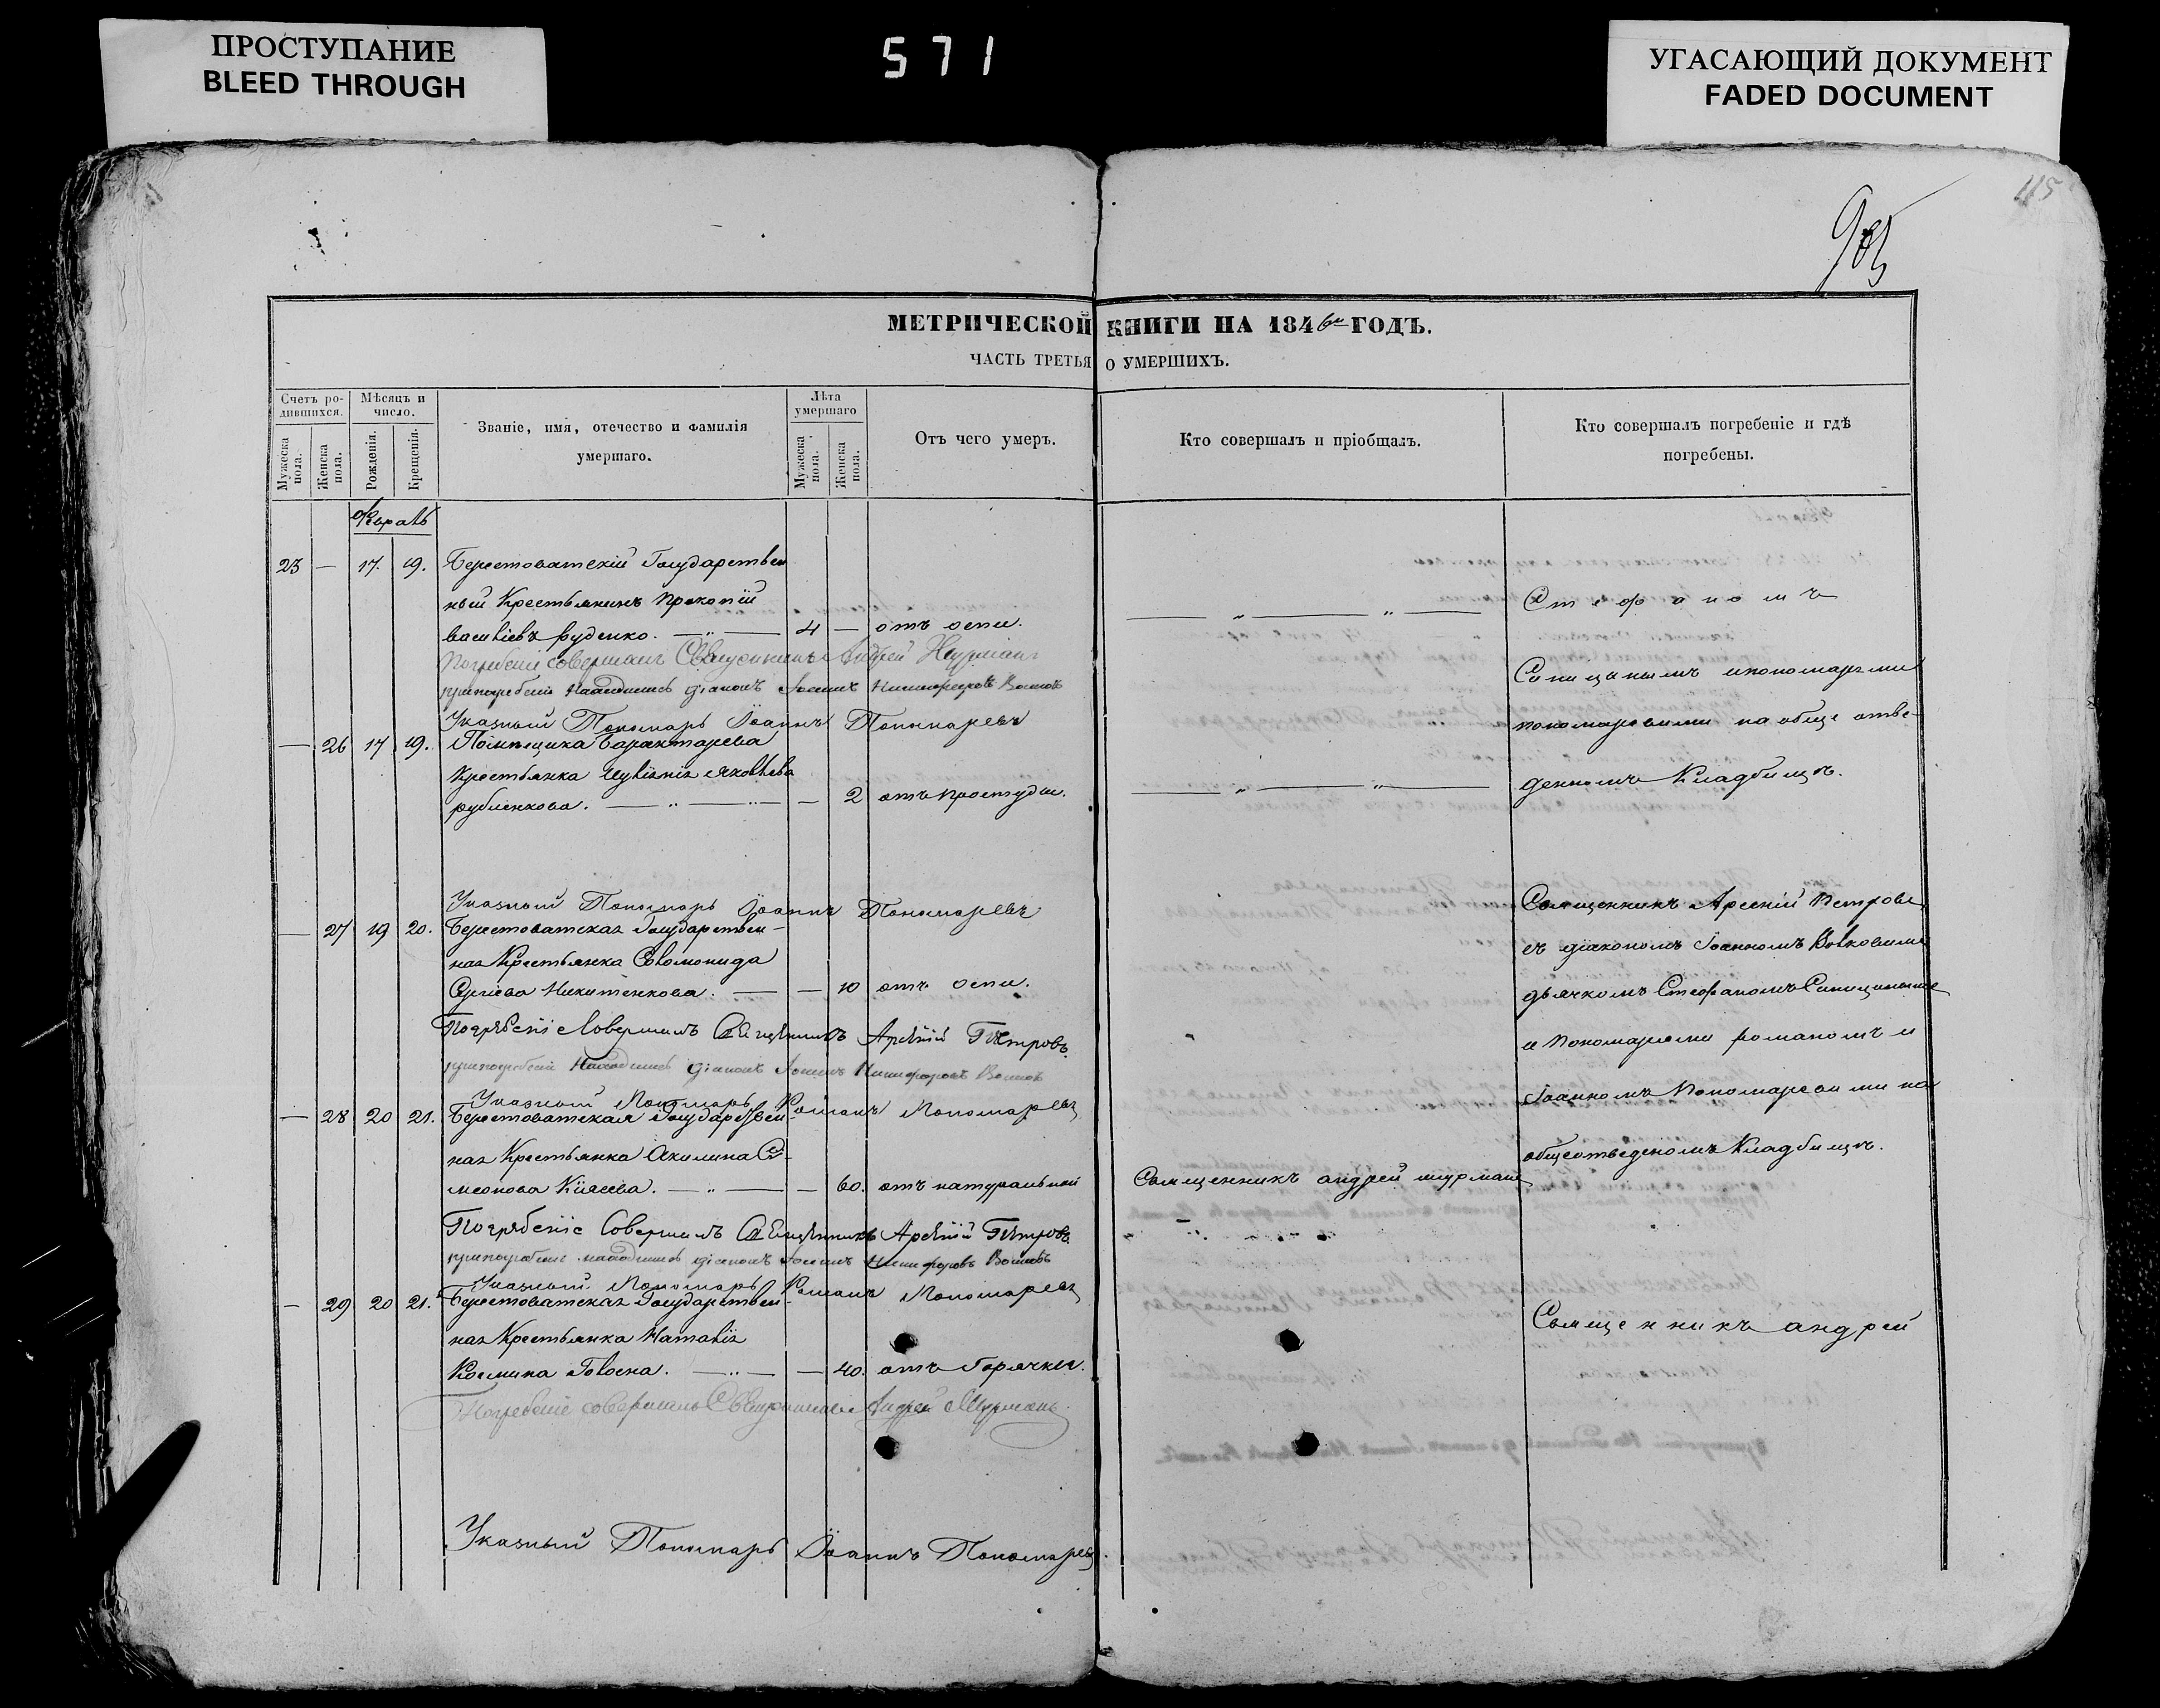 ПРОСТУПАНИЕ
BLEED THROUGH
571
УГАСАЮЩИЙ ДОКУМЕНТ
FADED DOCUMENT
115
МЕТРИЧЕСКОЙ КНИГИ НА 1846й ГОДЪ.
ЧАСТЬ ТРЕТЬЯ О УМЕРШИХЪ.
Счетъ ро-
дившихся.
Мужеска пола.
Женска пола.
Мѣсяцъ и
число.
Рожденія.
Крещенія.
Званіе, имя, отечество и фамилія
умершаго.
Лѣта
умершаго
Мужеска пола.
Женска пола.
Отъ чего умеръ.
Кто совершалъ и пріобщалъ.
Кто совершалъ погребеніе и гдѣ
погребены.
23 — 17. 19. Берестоватскій Государствен
ный Крестьянинъ Прокопій
Васильевъ Руденко. 4 — отъ оспы.
Погребеніе совершалъ Священникъ Андрей Шурманъ
при погребеніи находились діаконъ Іоаннъ Никифоровъ
Указный Пономарь Іоаннъ Пономаревъ
Стефаномъ
Синицынымъ и пономарями
Пономаревыми на обще отве-
денномъ Кладбищѣ.
— 26 17 19. Помѣщика Барактарева
Крестьянка Яковлева
— 2 отъ простуды.
Указный Пономарь Іоаннъ Пономаревъ
— 27 19 20. Берестоватская Государствен-
ная Крестьянка Соломонида
Сергіева Никитенкова. — 10 отъ оспы.
Погребеніе совершилъ Священникъ Арсеній Петровъ
при погребеніи находились діаконъ Іоаннъ Никифоровъ
Указный Пономарь Романъ Пономаревъ
Священникъ Арсеній Петровъ
съ діакономъ Іоанномъ Волковымъ
дьячкомъ Стефаномъ Синицынымъ
и пономарями Романомъ и
Іоанномъ Пономаревыми на
общеотведеномъ Кладбищѣ.
— 28 20 21. Берестоватская Государствен-
ная Крестьянка Акилина Си-
меонова Кіяева. — 60. отъ натуральной
Священникъ Андрей Шурманъ
Погребеніе Совершилъ Священникъ Арсеній Петровъ
при погребеніи находились діаконъ Іоаннъ Никифоровъ
Указный Пономарь Романъ Пономаревъ
— 29 20 21. Берестоватская Государствен-
ная Крестьянка Наталія
Космина — 40. отъ Горячки.
Погребеніе совершалъ Священникъ Андрей Шурманъ
Священникъ Андрей
Указный Пономарь Іоаннъ Пономаревъ